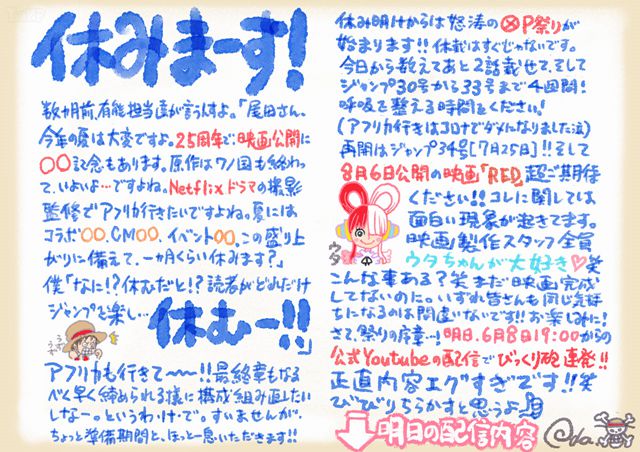 休みまーす!
数カ月前、有能担当達が言うんすよ。「尾田さん、
今年の夏は大変ですよ。25周年で:映画公開に
〇〇記念もあります。原作はワノ国も終わっ
て、いよいよ…ですよね。Netflixドラマの撮影
監修でアフリカ行きたいですよね。夏には
コラボ〇〇、CM〇〇、イベント〇〇。この盛り上
がりに備えて、一カ月くらい休みます?」
僕「なに!?休むだと!?読者がどれだけ
ジャンプを楽し…休むーー!!」
うずうず
アフリカも行きて〜〜!!最終章もなる
べく早く締められる様に構成組み直したい
しなー。というわ・け・で。すいませんが、
ちょっと準備期間と、ほっと一息いただきます!!
休み明けからは怒涛のⓍP祭りが
始まります!!休むはすぐじゃないです。
今日から数えてあと2話載せて、そして
ジャンプ30号から33号まで4週間!
呼吸を整える時間をください!
(アフリカ行きはコロナでダメになりました泣)
再開はジャンプ34号[7月25日]!!そして
8月6日公開の映画「RED」超ご期待
ください!!コレに関しては
面白い現象が起きてます。
映画製作スタッフ全員
ウタちゃんが大好き♡笑
ウタ
こんな事ある?笑 まだ映画完成
してないのに。いずれ皆さんも同じ気持
ちになるのは間違いないです!!お楽しみに!
さて、祭りの序章…!明日、6月8日19:00からの
公式Youtubeの配信でびっくり砲連発!!
正直内容エグすぎです!!笑
びびりちらかすと思うよ
明日の配信内容
Oda.